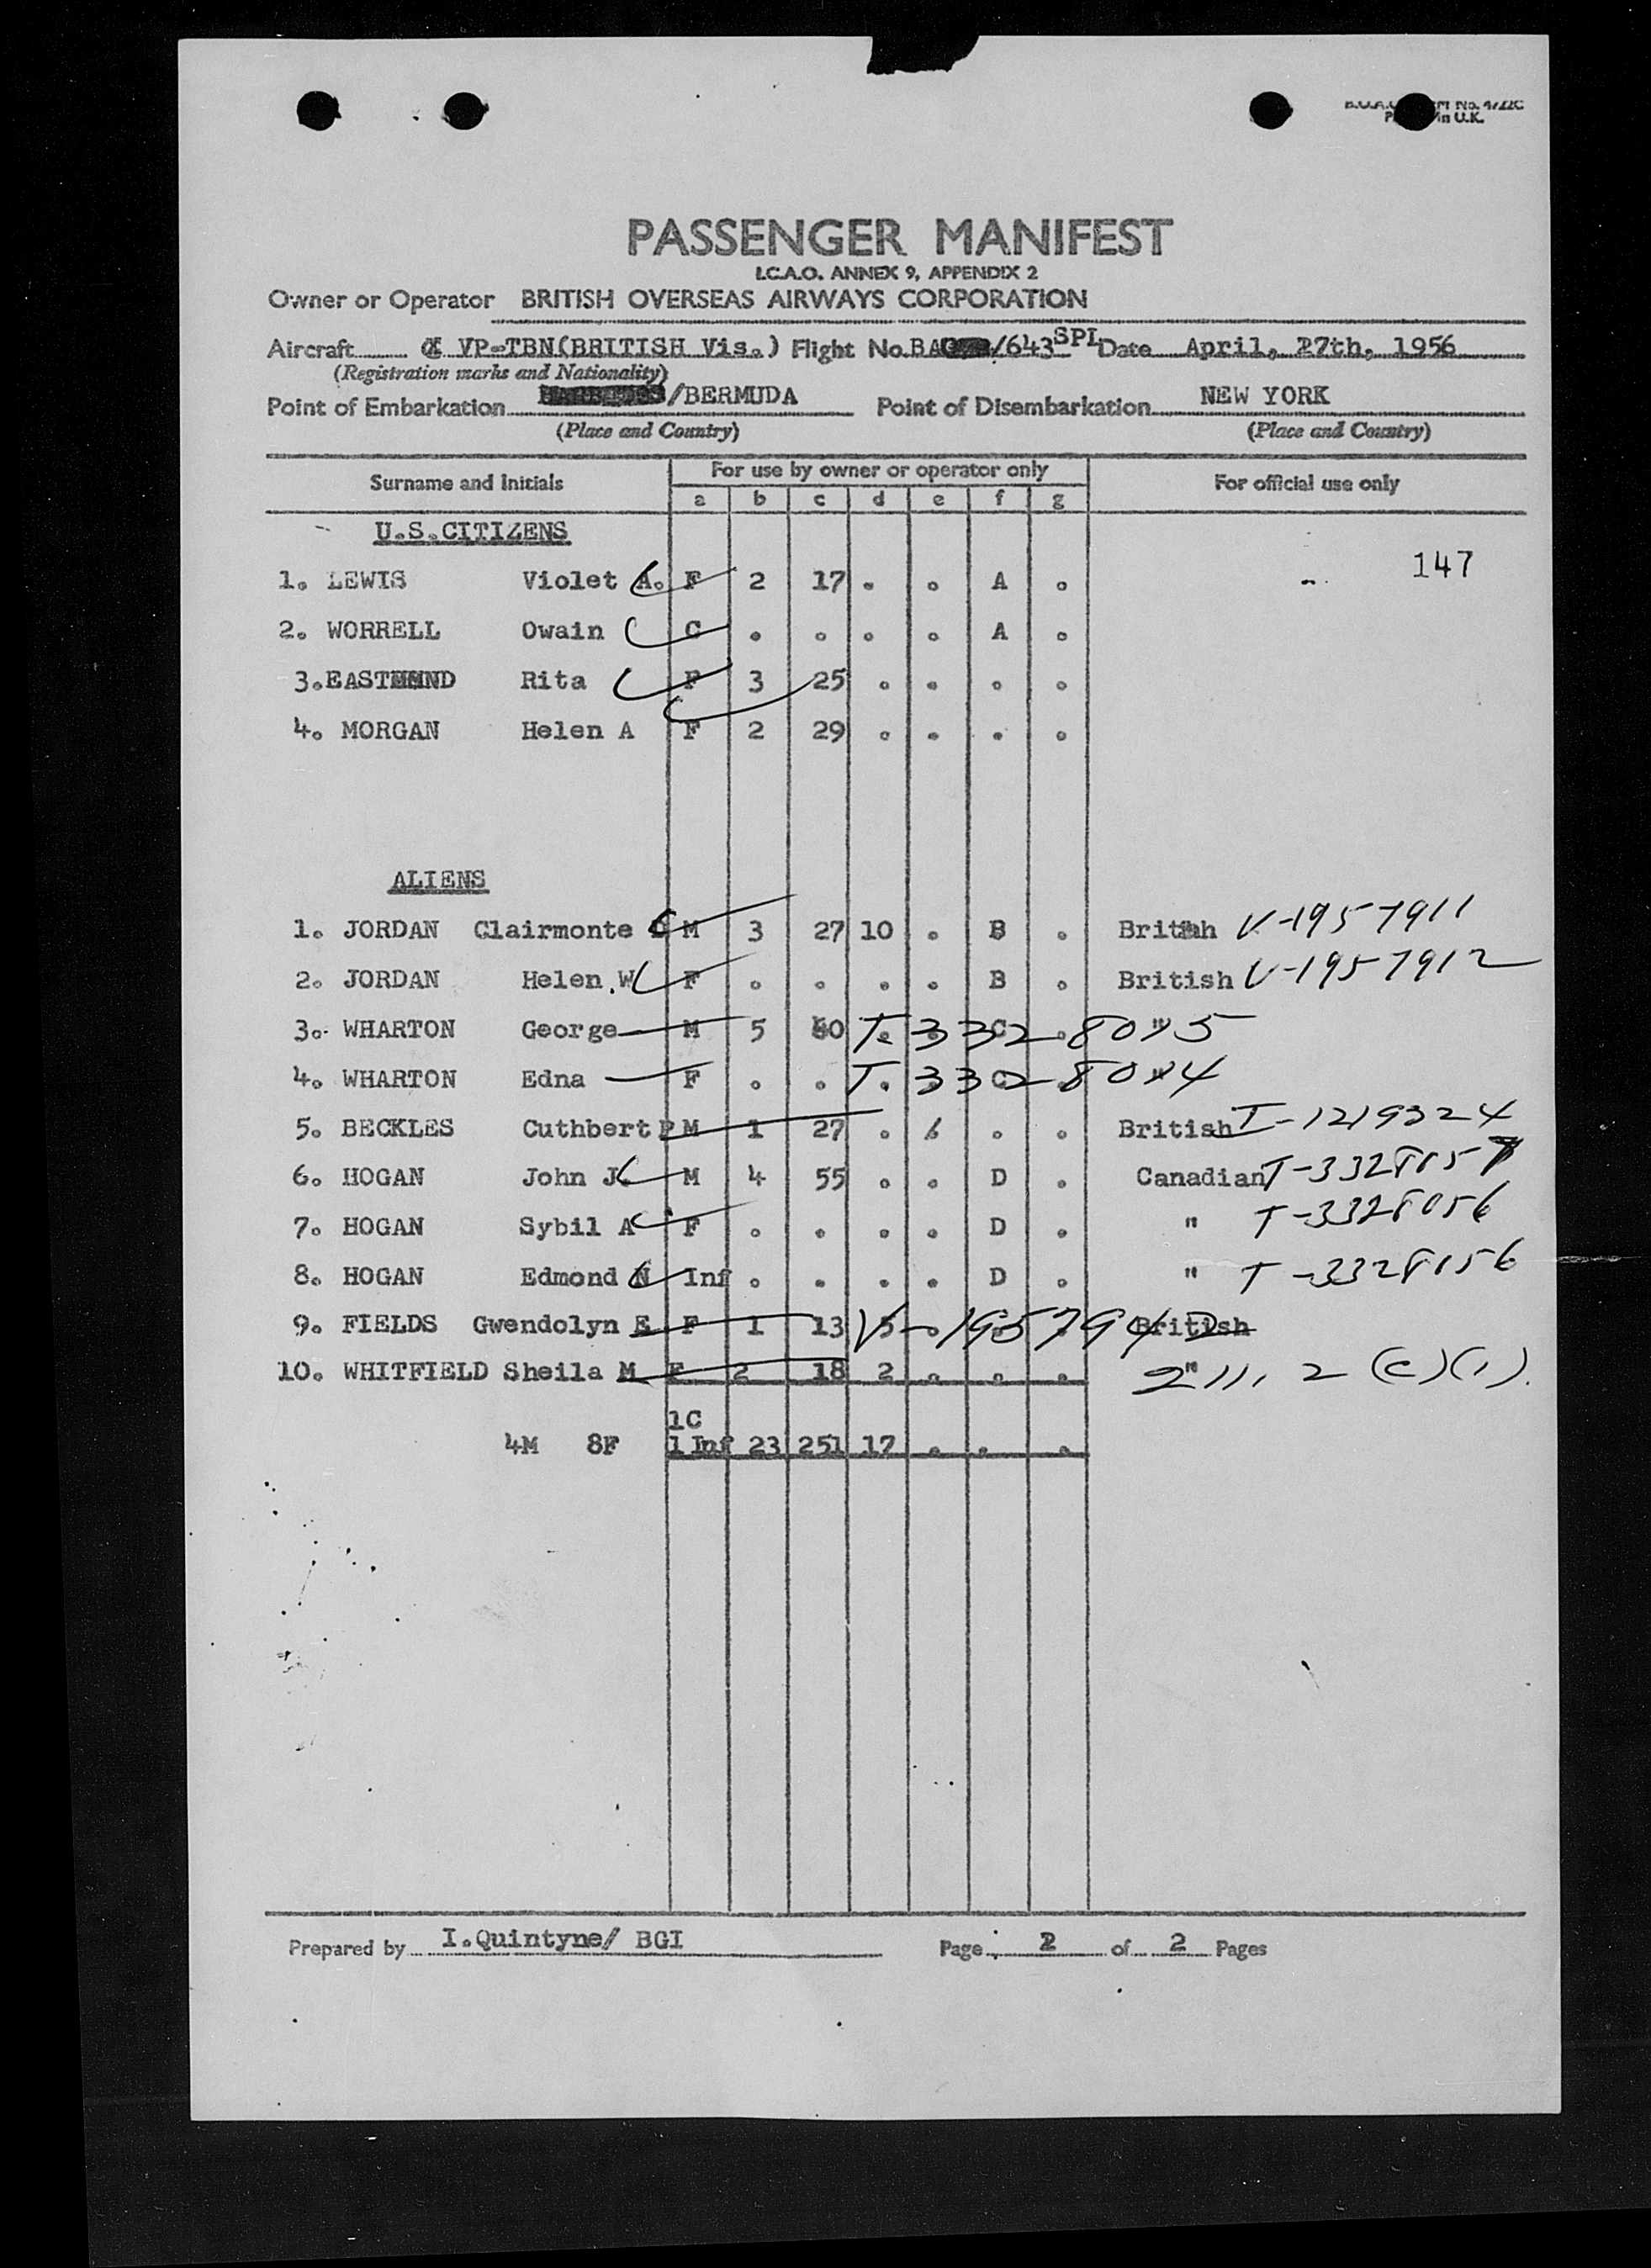 PASSENGER MANIFEST
I.C.A.O. ANNEX 9, APPENDIX 2
Owner or Operator BRITISH OVERSEAS AIRWAYS CORPORATION
Aircraft VP-TBN(BRITISH Vis.) Flight No. BA /643 SPL Date April, 27th, 1956
(Registration marks and Nationality)
Point of Embarkation /BERMUDA Point of Disembarkation NEW YORK
(Place and Country) (Place and Country)
Surname and Initials For use by owner or operator only For official use only
a b c d e f g
U.S.CITIZENS
147
1. LEWIS Violet A. F 2 17 . . A .
2. WORRELL Owain C . . . . A .
3.EASTMOND Rita F 3 25 . . . .
4. MORGAN Helen A F 2 29 . . . .
ALIENS
1. JORDAN Clairmonte M 3 27 10 . B . British V-1957911
2. JORDAN Helen.W F . . . . B . British V-1957912
3. WHARTON George M 5 40 . . C . " T.3328035
4. WHARTON Edna F . . . . C . " T.3328034
5. BECKLES Cuthbert P M 1 27 . 6 . . British T-1219324
6. HOGAN John J. M 4 55 . . D . Canadian T-3328157
7. HOGAN Sybil A F . . . . D . " T-3328056
8. HOGAN Edmond N Inf . . . . D . " T-3328156
9. FIELDS Gwendolyn E F 1 13 5 . . . British V-1957942
10. WHITFIELD Sheila M F 2 18 2 . . . " 2111 2 (c)(1).
1C
4M 8F 1 Inf 23 251 17 . . .
Prepared by I.Quintyne/ BGI Page 2 of 2 Pages